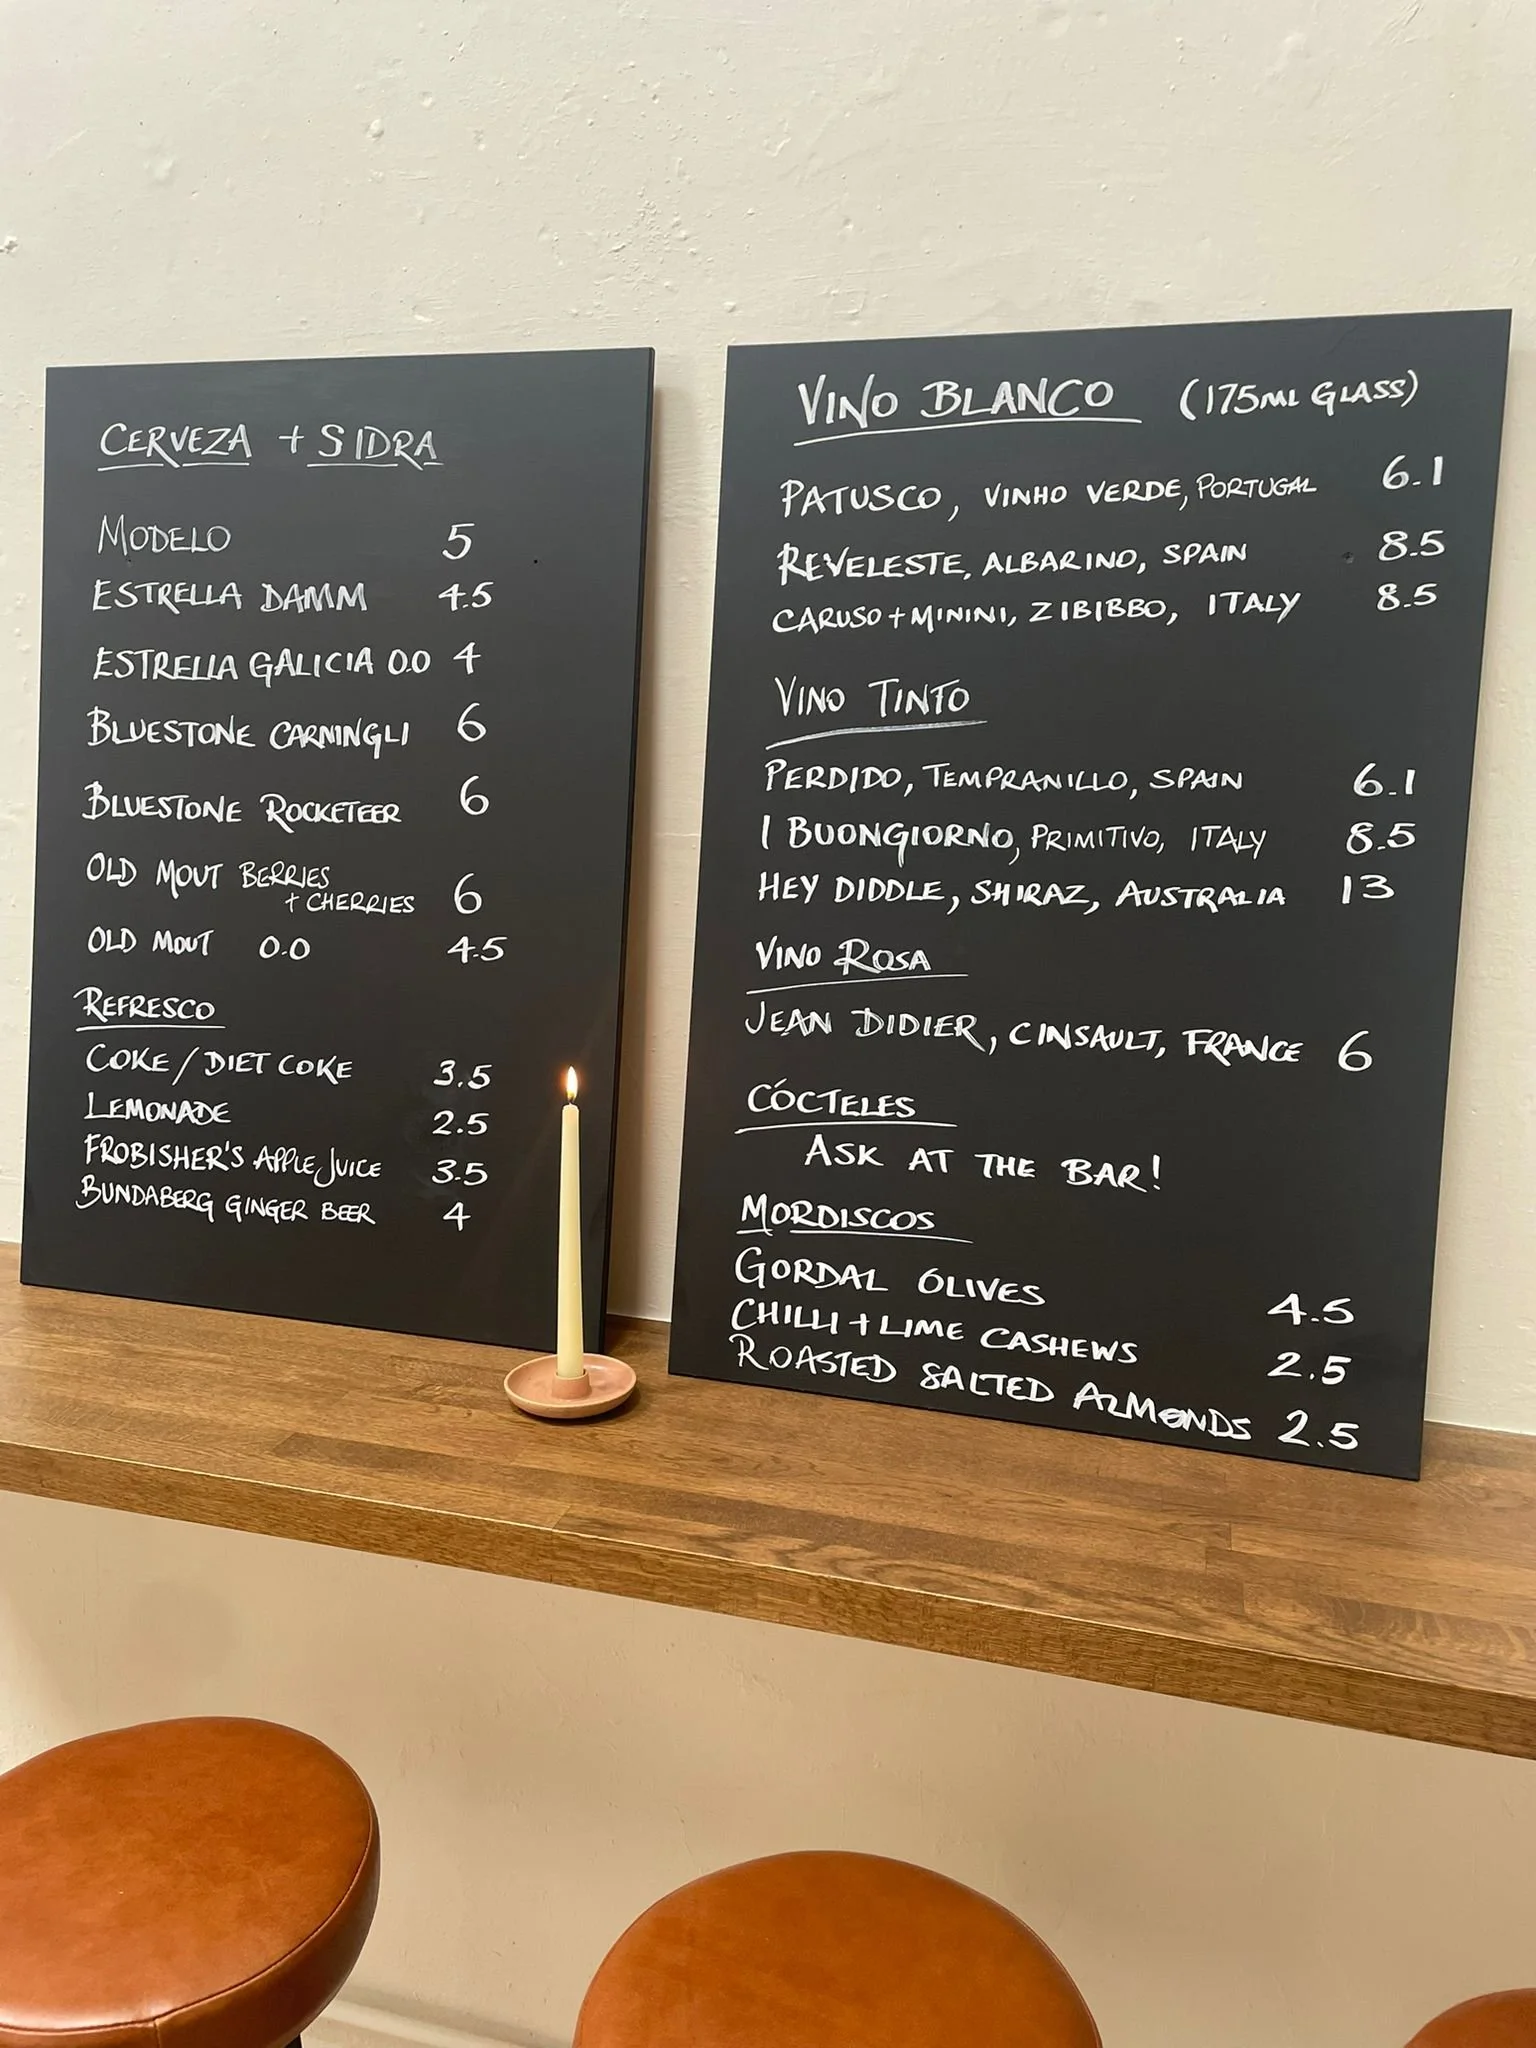 CERVEZA + SIDRA
MODELO 5
ESTRELLA DAMM 4.5
ESTRELLA GALICIA 0.0 4
BLUESTONE CARNINGLI 6
BLUESTONE ROCKETEER 6
OLD MOUT BERRIES
+ CHERRIES 6
OLD MOUT 0.0 4.5
REFRESCO
COKE / DIET COKE 3.5
LEMONADE 2.5
FROBISHER'S APPLE JUICE 3.5
BUNDABERG GINGER BEER 4
VINO BLANCO (175ML GLASS)
PATUSCO, VINHO VERDE, PORTUGAL 6.1
REVELESTE, ALBARINO, SPAIN 8.5
CARUSO + MININI, ZIBIBBO, ITALY 8.5
VINO TINTO
PERDIDO, TEMPRANILLO, SPAIN 6.1
I BUONGIORNO, PRIMITIVO, ITALY 8.5
HEY DIDDLE, SHIRAZ, AUSTRALIA 13
VINO ROSA
JEAN DIDIER, CINSAULT, FRANCE 6
CÓCTELES
ASK AT THE BAR!
MORDISCOS
GORDAL OLIVES 4.5
CHILLI + LIME CASHEWS 2.5
ROASTED SALTED ALMONDS 2.5